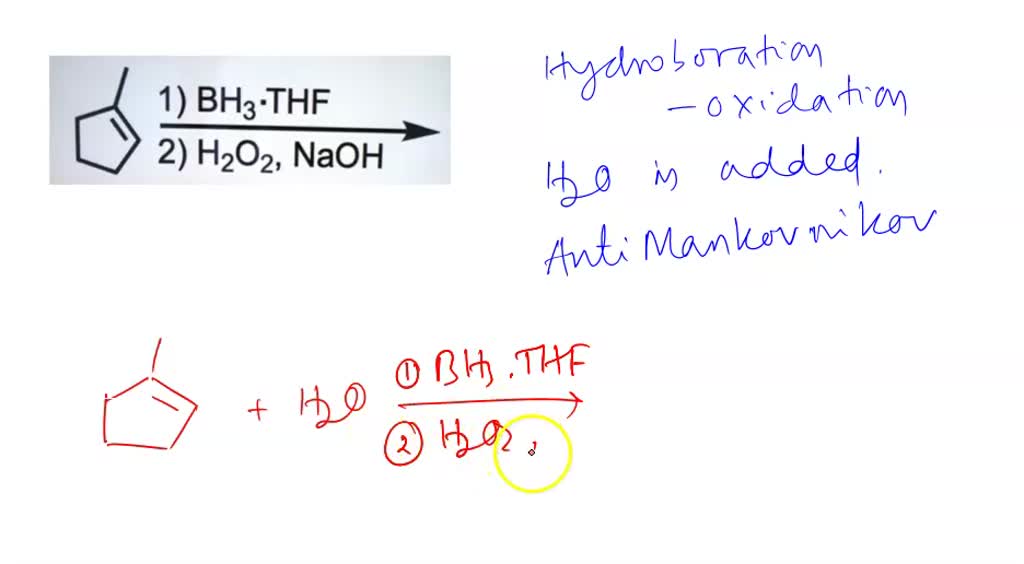 1) BH₃·THF
2) H₂O₂, NaOH
Hydroboration
- oxidation
H₂O is added.
Anti Mankovnikov
+ H₂O
① BH₃.THF
② H₂O₂,